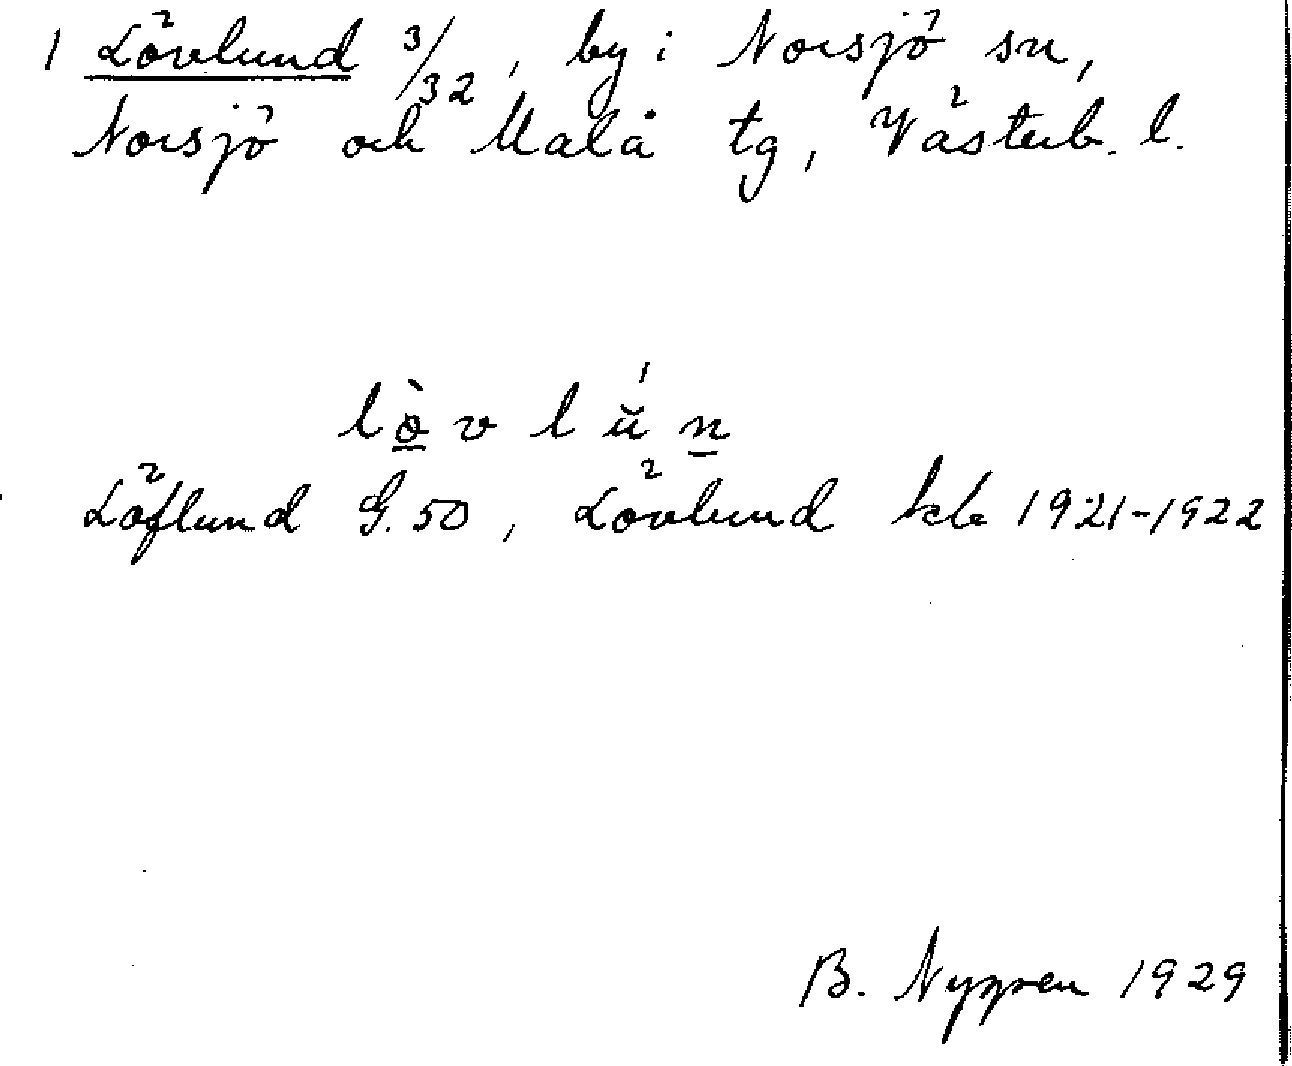 1 Lövlund 3/32, by i Norsjö sn,
Norsjö och Malå tg, Västerb. l.
lò̱v lŭ́n̲
Löflund G. 50, Lövlund kb 1921-1922
B. Nygren 1929